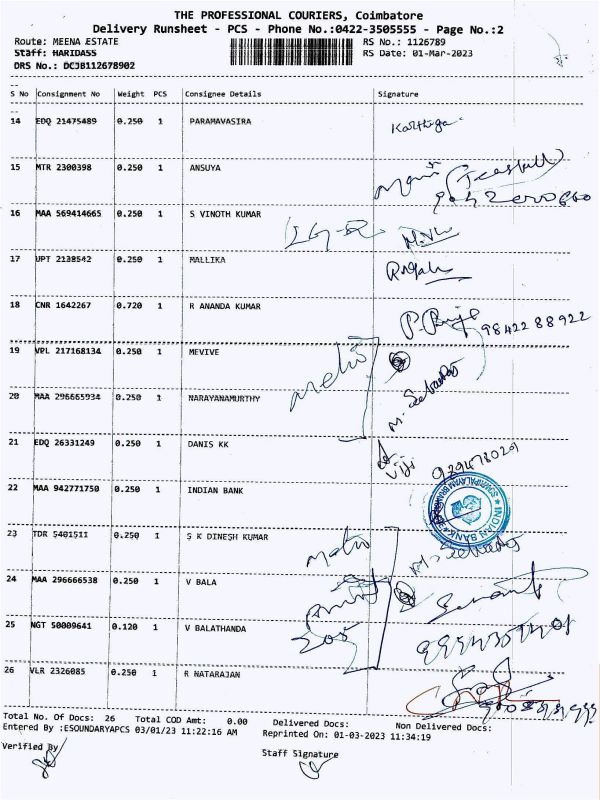 THE PROFESSIONAL COURIERS, Coimbatore
Delivery Runsheet - PCS - Phone No.:0422-3505555 - Page No.:2
Route: MEENA ESTATE RS No.: 1126789
Staff: HARIDASS RS Date: 01-Mar-2023
DRS No.: DCJB112678902
S No Consignment No Weight PCS Consignee Details Signature
14 EDQ 21475489 0.250 1 PARAMAVASIRA Karthiga
15 MTR 2300398 0.250 1 ANSUYA
16 MAA 569414665 0.250 1 S VINOTH KUMAR
17 UPT 2138542 0.250 1 MALLIKA
18 CNR 1642267 0.720 1 R ANANDA KUMAR 9842288922
19 VPL 217168134 0.250 1 MEVIVE
20 MAA 296665934 0.250 1 NARAYANAMURTHY
21 EDQ 26331249 0.250 1 DANIS KK
Viji
22 MAA 942771750 0.250 1 INDIAN BANK
INDIAN BANK
23 TDR 5401511 0.250 1 S K DINESH KUMAR
24 MAA 296666538 0.250 1 V BALA
25 NGT 50009641 0.120 1 V BALATHANDA
26 VLR 2326085 0.250 1 R NATARAJAN
Total No. Of Docs: 26 Total COD Amt: 0.00 Delivered Docs: Non Delivered Docs:
Entered By :ESOUNDARYAPCS 03/01/23 11:22:16 AM Reprinted On: 01-03-2023 11:34:19
Verified By Staff Signature